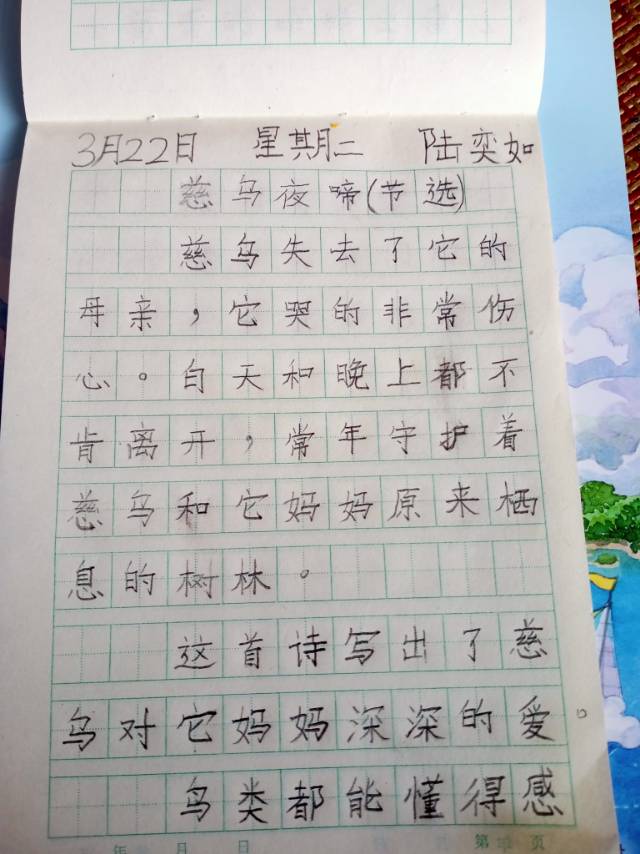 3月22日 星期二 陆奕如
慈乌夜啼(节选)
慈乌失去了它的
母亲，它哭的非常伤
心。白天和晚上都不
肯离开，常年守护着
慈乌和它妈妈原来栖
息的树林。
这首诗写出了慈
乌对它妈妈深深的爱。
鸟类都能懂得感
年 月 日 第 页